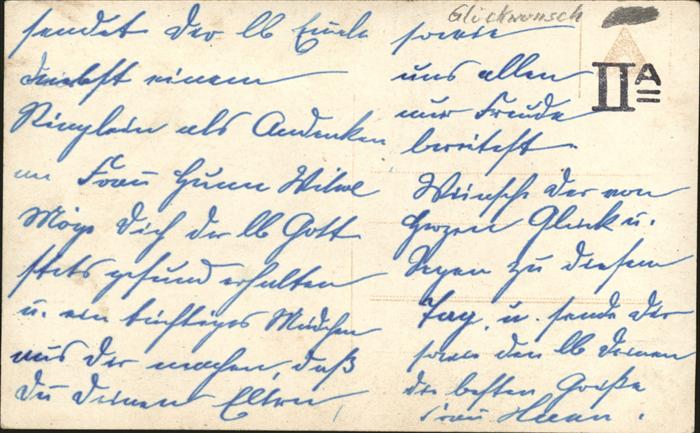 Glückwunsch
IIA
sendet dir lb
nebst einem
Ringlein als Andenken
an Frau
Möge Dich der lb Gott
stets gesund erhalten
u. ein tüchtiges Mädchen
aus Dir machen, daß
Du Deinen Eltern,
sowie
uns allen
nur Freude
bereitest.
Wünsche Dir von
Herzen Glück u.
Segen zu diesem
Tag, u. sende Dir
sowie den lb Deinen
die besten Grüße
Frau